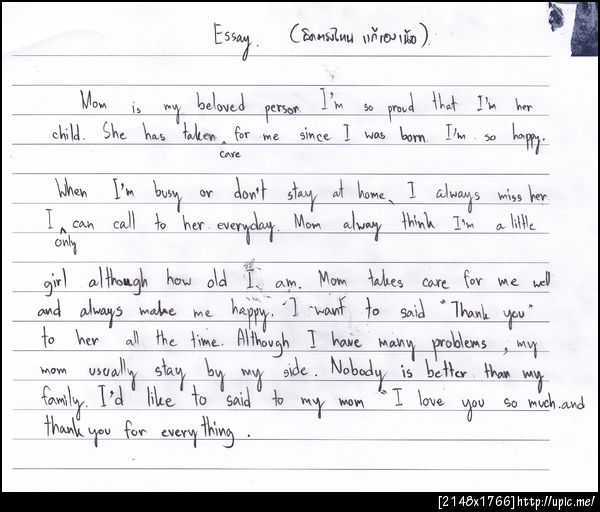 Essay. (ผิดตรงไหน แก้เองเน้อ)
Mom is my beloved person. I'm so proud that I'm her
child. She has taken care for me since I was born. I'm so happy.
When I'm busy or don't stay at home, I always miss her.
I only can call to her everyday. Mom alway think I'm a little
girl although how old I am. Mom takes care for me well
and always make me happy. I want to said "Thank you"
to her all the time. Although I have many problems, my
mom usually stay by my side. Nobody is better than my
family. I'd like to said to my mom "I love you so much and
thank you for everything.
[2148x1766]http://upic.me/